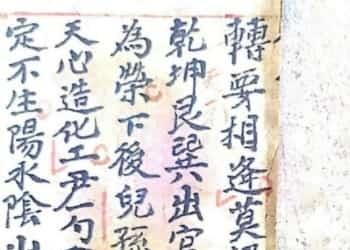 轉要相逢莫
乾坤艮巽出官
為榮下後兒孫
天心造化工君一句
定不生陽水陰山